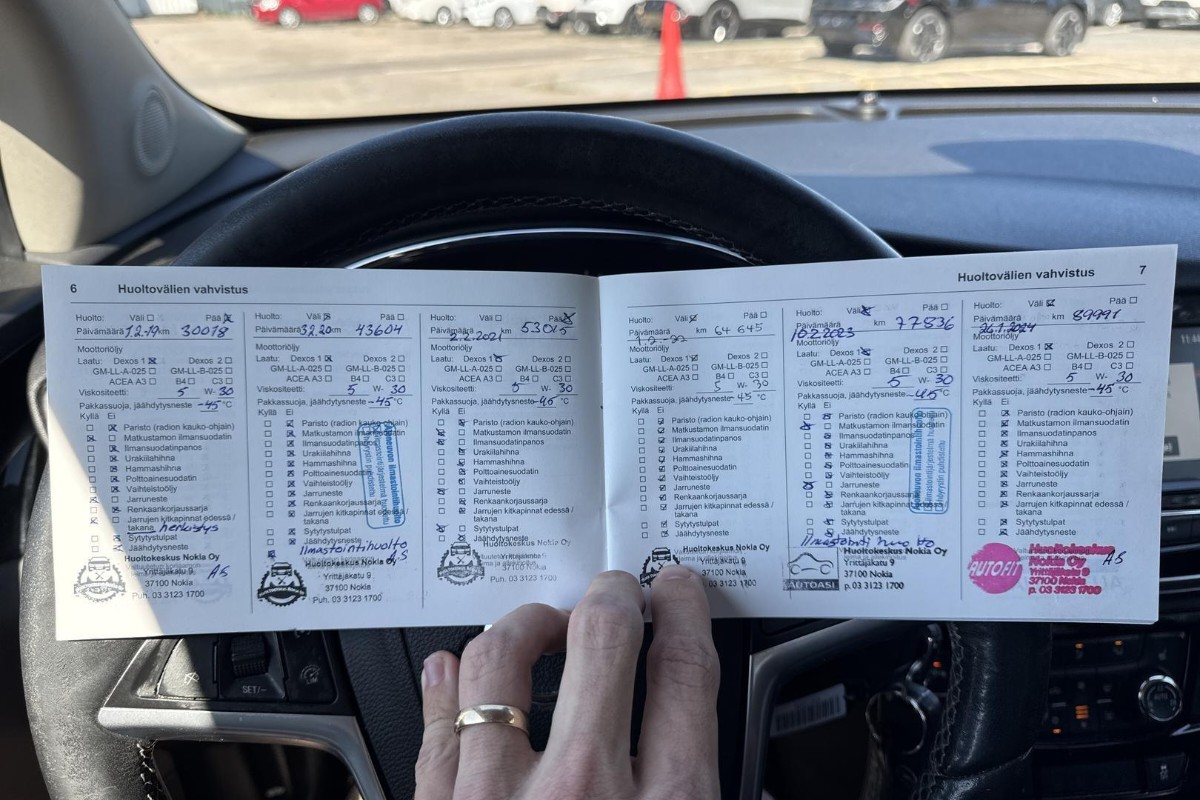 6 Huoltovälien vahvistus
Huolto: Väli Pää
Päivämäärä 12.19 km 30018
Moottoriöljy
Laatu: Dexos 1 Dexos 2
GM-LL-A-025 GM-LL-B-025
ACEA A3 B4 C3
Viskositeetti: 5 W- 30
Pakkassuoja, jäähdytysneste -45 °C
Kyllä Ei
Paristo (radion kauko-ohjain)
Matkustamon ilmansuodatin
Ilmansuodatinpanos
Urakiilahihna
Hammashihna
Polttoainesuodatin
Vaihteistoöljy
Jarruneste
Renkaankorjaussarja
Jarrujen kitkapinnat edessä /
takana herkistys
Sytytystulpat
Jäähdytysneste
Huoltokeskus Nokia Oy
Yrittäjäkatu 9
37100 Nokia AS
Huolto: Väli Pää
Päivämäärä 3.2.20 km 43604
Moottoriöljy
Laatu: Dexos 1 Dexos 2
GM-LL-A-025 GM-LL-B-025
ACEA A3 B4 C3
Viskositeetti: 5 W- 30
Pakkassuoja, jäähdytysneste -45 °C
Kyllä Ei
Paristo (radion kauko-ohjain)
Matkustamon ilmansuodatin
Ilmansuodatinpanos
Urakiilahihna
Hammashihna
Polttoainesuodatin
Vaihteistoöljy
Jarruneste
Renkaankorjaussarja
Jarrujen kitkapinnat edessä /
takana
Sytytystulpat
Jäähdytysneste
Ilmastointihuolto
AS
Huoltokeskus Nokia Oy
Yrittäjäkatu 9
37100 Nokia
Puh. 03 3123 1700
Huolto: Väli Pää
Päivämäärä 2.2.2021 km 53015
Moottoriöljy
Laatu: Dexos 1 Dexos 2
GM-LL-A-025 GM-LL-B-025
ACEA A3 B4 C3
Viskositeetti: 5 W- 30
Pakkassuoja, jäähdytysneste -45 °C
Kyllä Ei
Paristo (radion kauko-ohjain)
Matkustamon ilmansuodatin
Ilmansuodatinpanos
Urakiilahihna
Hammashihna
Polttoainesuodatin
Vaihteistoöljy
Jarruneste
Renkaankorjaussarja
Jarrujen kitkapinnat edessä /
takana
Sytytystulpat
Jäähdytysneste
Huoltokeskus Nokia Oy
Yrittäjäkatu 9
37100 Nokia
Puh. 03 3123 1700
Huoltovälien vahvistus 7
Huolto: Väli Pää
Päivämäärä km 64 645
Moottoriöljy
Laatu: Dexos 1 Dexos 2
GM-LL-A-025 GM-LL-B-025
ACEA A3 B4 C3
Viskositeetti: 5 W- 30
Pakkassuoja, jäähdytysneste -45 °C
Kyllä Ei
Paristo (radion kauko-ohjain)
Matkustamon ilmansuodatin
Ilmansuodatinpanos
Urakiilahihna
Hammashihna
Polttoainesuodatin
Vaihteistoöljy
Jarruneste
Renkaankorjaussarja
Jarrujen kitkapinnat edessä /
takana
Sytytystulpat
Jäähdytysneste
Huoltokeskus Nokia Oy
Yrittäjäkatu 9
37100 Nokia
03 3123 1700
Huolto: Väli Pää
Päivämäärä 10.2.2023 km 77836
Moottoriöljy
Laatu: Dexos 1 Dexos 2
GM-LL-A-025 GM-LL-B-025
ACEA A3 B4 C3
Viskositeetti: 5 W- 30
Pakkassuoja, jäähdytysneste -45 °C
Kyllä Ei
Paristo (radion kauko-ohjain)
Matkustamon ilmansuodatin
Ilmansuodatinpanos
Urakiilahihna
Hammashihna
Polttoainesuodatin
Vaihteistoöljy
Jarruneste
Renkaankorjaussarja
Jarrujen kitkapinnat edessä /
takana
Sytytystulpat
Ilmastointi huolto
AUTOASI
Huoltokeskus Nokia Oy
Yrittäjäkatu 9
37100 Nokia
p. 03 3123 1700
Huolto: Väli Pää
Päivämäärä 26.1.2024 km 89991
Moottoriöljy
Laatu: Dexos 1 Dexos 2
GM-LL-A-025 GM-LL-B-025
ACEA A3 B4 C3
Viskositeetti: 5 W- 30
Pakkassuoja, jäähdytysneste -45 °C
Kyllä Ei
Paristo (radion kauko-ohjain)
Matkustamon ilmansuodatin
Ilmansuodatinpanos
Urakiilahihna
Hammashihna
Polttoainesuodatin
Vaihteistoöljy
Jarruneste
Renkaankorjaussarja
Jarrujen kitkapinnat edessä /
takana
Sytytystulpat
Jäähdytysneste
AUTOFIT
Huoltokeskus
Nokia Oy AS
37100 Nokia
p. 03 3123 1700
SET/–